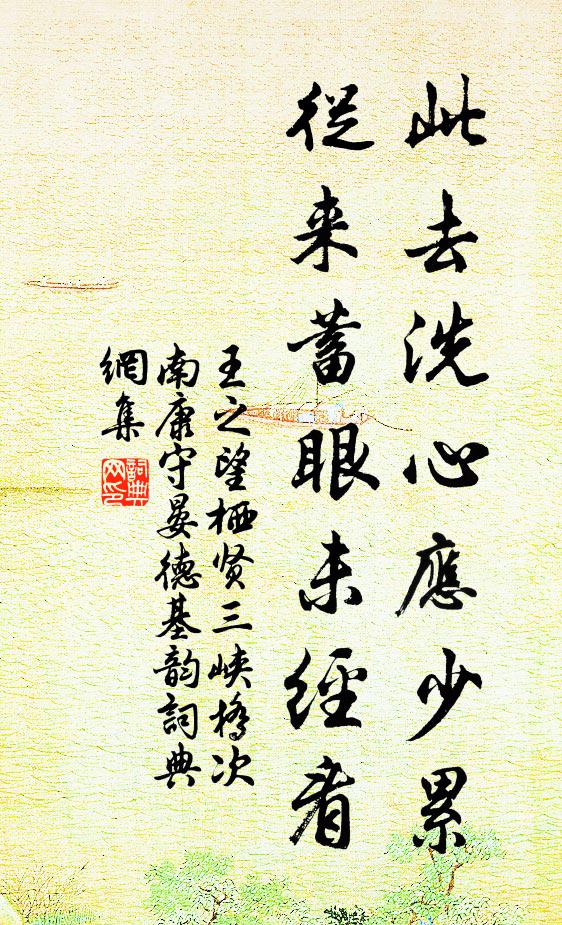 此去洗心應少累
從来蓄眼未經看
王之望栖贤三峡橋次
南康守晏德基韵詞典
網集
詞典
网印